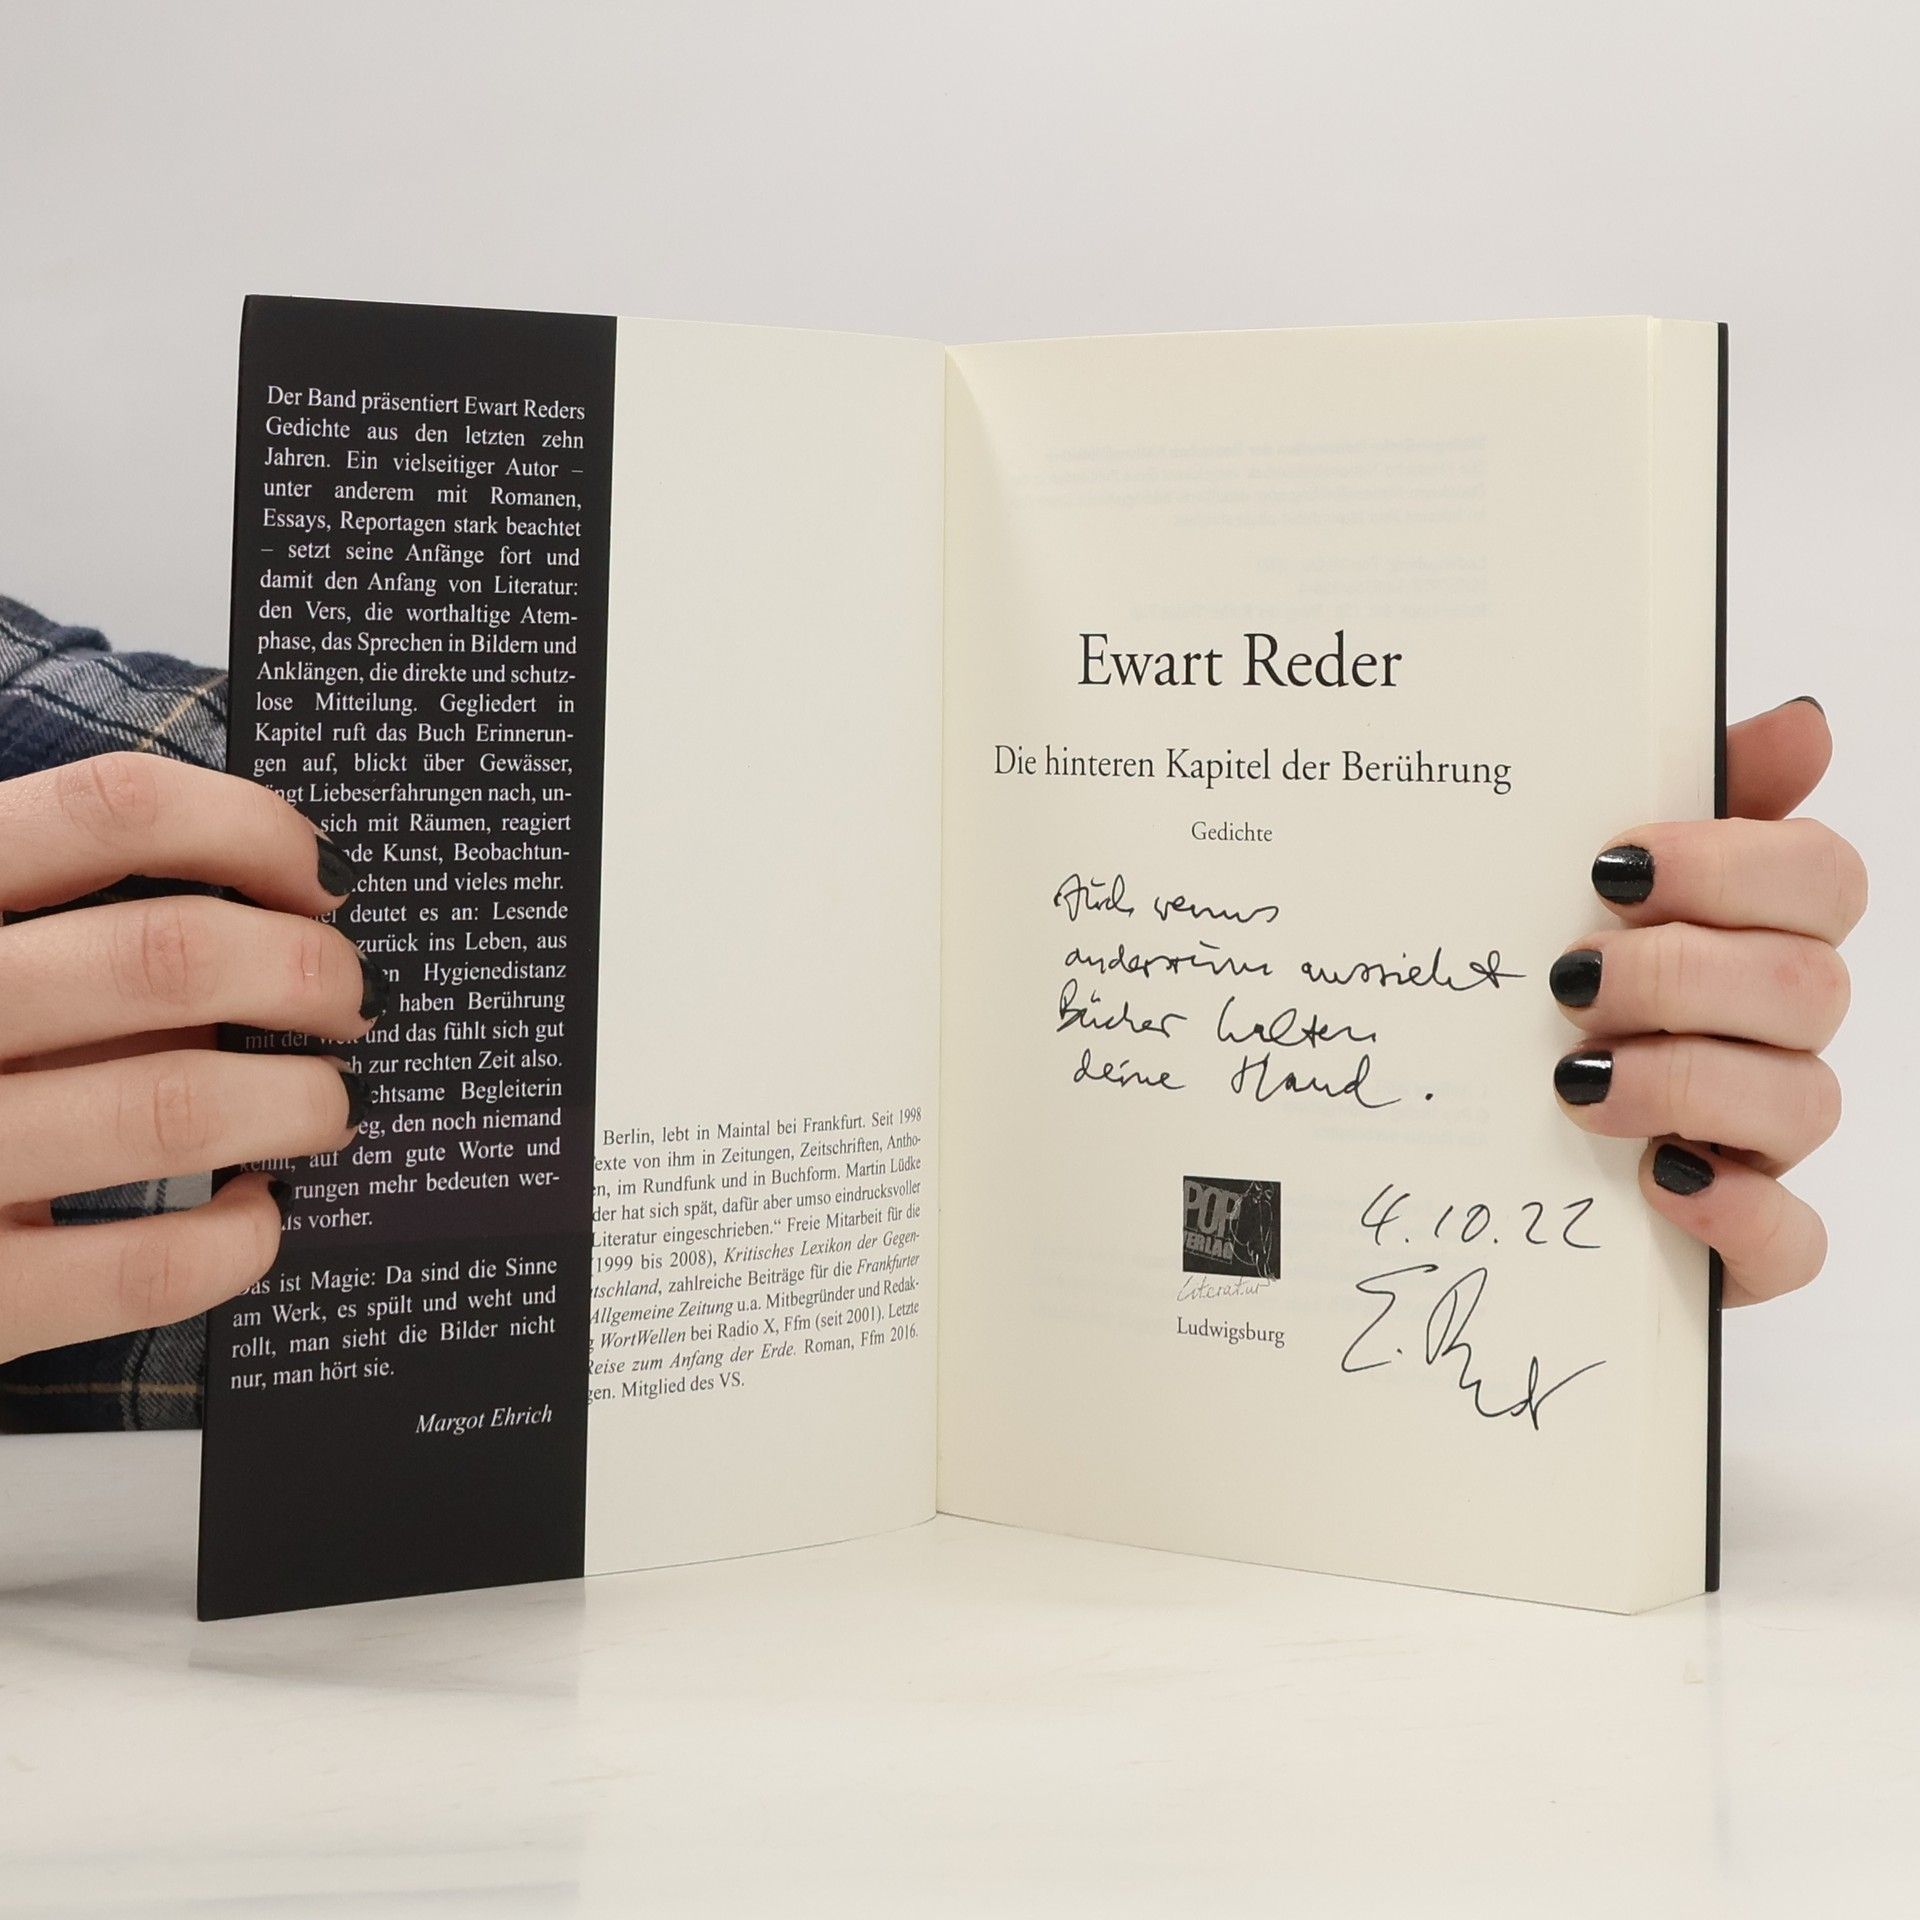 Der Band präsentiert Ewart Reders
Gedichte aus den letzten zehn
Jahren. Ein vielseitiger Autor –
unter anderem mit Romanen,
Essays, Reportagen stark beachtet
– setzt seine Anfänge fort und
damit den Anfang von Literatur:
den Vers, die worthaltige Atem-
phase, das Sprechen in Bildern und
Anklängen, die direkte und schutz-
lose Mitteilung. Gegliedert in
Kapitel ruft das Buch Erinnerun-
gen auf, blickt über Gewässer,
Liebeserfahrungen nach, un-
sich mit Räumen, reagiert
Kunst, Beobachtun-
und vieles mehr.
deutet es an: Lesende
zurück ins Leben, aus
Hygienedistanz
haben Berührung
mit der und das fühlt sich gut
zur rechten Zeit also.
Begleiterin
den noch niemand
kennt, auf dem gute Worte und
mehr bedeuten wer-
vorher.
Das ist Magie: Da sind die Sinne
am Werk, es spült und weht und
rollt, man sieht die Bilder nicht
nur, man hört sie.
Margot Ehrich
Berlin, lebt in Maintal bei Frankfurt. Seit 1998
von ihm in Zeitungen, Zeitschriften, Antho-
im Rundfunk und in Buchform. Martin Lüdke
hat sich spät, dafür aber umso eindrucksvoller
Literatur eingeschrieben.“ Freie Mitarbeit für die
1999 bis 2008), Kritisches Lexikon der Gegen-
zahlreiche Beiträge für die Frankfurter
Allgemeine Zeitung u.a. Mitbegründer und Redak-
WortWellen bei Radio X, Ffm (seit 2001). Letzte
Reise zum Anfang der Erde. Roman, Ffm 2016.
Mitglied des VS.
Ewart Reder
Die hinteren Kapitel der Berührung
Gedichte
Auch wenns
andersrum aussieht
Bücher halten
deine Hand.
POP
VERLAG
Literatur
Ludwigsburg
4.10.22
E. Reder